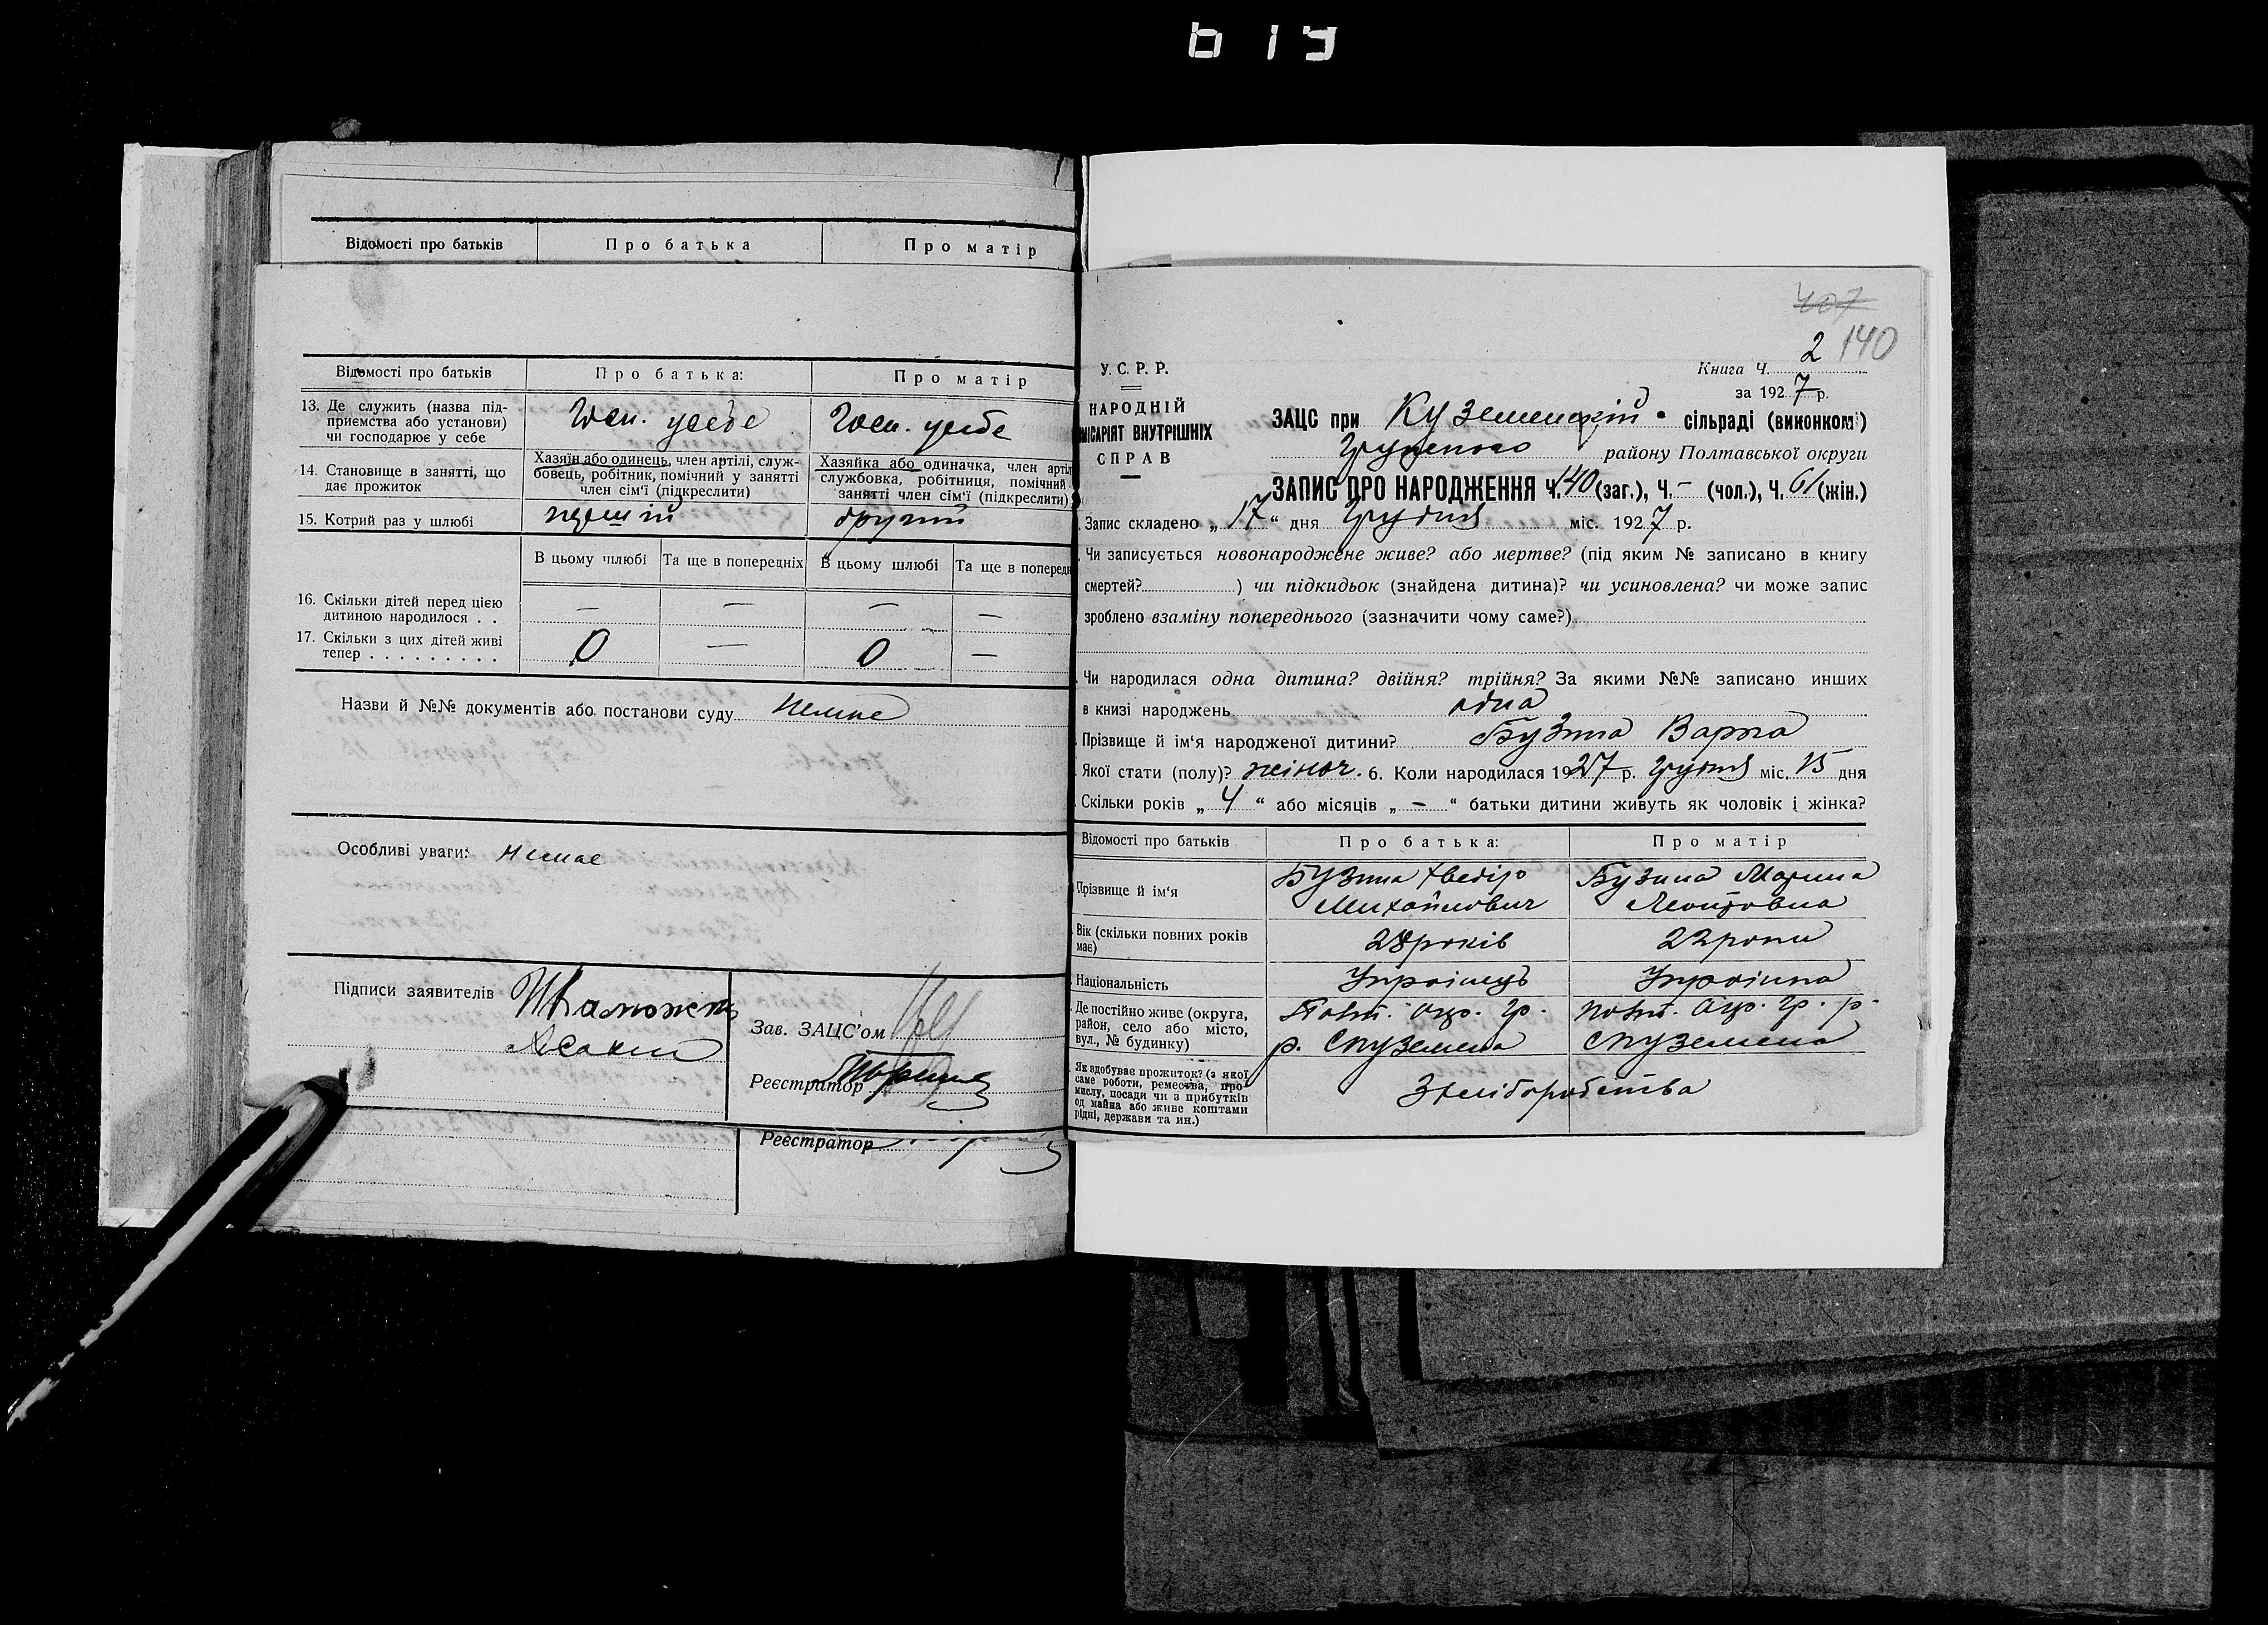 619
Відомості про батьків Про батька Про матір
Відомості про батьків Про батька: Про матір
13. Де служить (назва під-
приємства або установи)
чи господарює у себе
Госп. у себе
Госп. у себе
14. Становище в занятті, що
дає прожиток
Хазяїн або одинець, член артілі, служ-
бовець, робітник, помічний у занятті
член сім'ї (підкреслити)
Хазяйка або одиначка, член артіл
службовка, робітниця, помічний
занятті член сім'ї (підкреслити)
15. Котрий раз у шлюбі
перший
другий
В цьому шлюбі Та ще в попередніх В цьому шлюбі Та ще в попередн
16. Скільки дітей перед цією
дитиною народилося . . — — — —
17. Скільки з цих дітей живі
тепер . . . . . . . . . 0 — 0 —
Назви й №№ документів або постанови суду немає
Особливі уваги: немає
Підписи заявителів
Зав. ЗАЦС'ом
Реєстратор
Реєстратор
407
140
У. С. Р. Р.
НАРОДНІЙ
МІСАРІЯТ ВНУТРІШНІХ
СПРАВ
Книга Ч. 2
за 1927 р.
ЗАЦС при Куземенській сільраді (виконкомі)
району Полтавської округи
ЗАПИС ПРО НАРОДЖЕННЯ Ч. 140 (заг.), Ч. — (чол.), Ч. 61 (жін.)
Запис складено „17" дня Грудня міс. 1927 р.
Чи записується новонароджене живе? або мертве? (під яким № записано в книгу
смертей? ) чи підкидьок (знайдена дитина)? чи усиновлена? чи може запис
зроблено взаміну попереднього (зазначити чому саме?)
Чи народилася одна дитина? двійня? трійня? За якими №№ записано инших
в книзі народжень одна
Прізвище й ім'я народженої дитини? Бузина
Якої стати (полу)? жіноч. 6. Коли народилася 1927 р. Грудня міс. 15 дня
Скільки років „4" або місяців „—" батьки дитини живуть як чоловік і жінка?
Відомості про батьків Про батька: Про матір
Прізвище й ім'я
Бузина Хведір
Михайлович
Бузина Марина
Вік (скільки повних років
має)
28 років
22 роки
Національність
Українець
Українка
Де постійно живе (округа,
район, село або місто,
вул., № будинку)
Полт. окр. Гр.
р. С Куземена
Полт. окр. Гр. р.
С Куземена
Як здобуває прожиток? (з якої
саме роботи, ремества, про-
мислу, посади чи з прибутків
од майна або живе коштами
рідні, держави та ин.)
З хліборобства